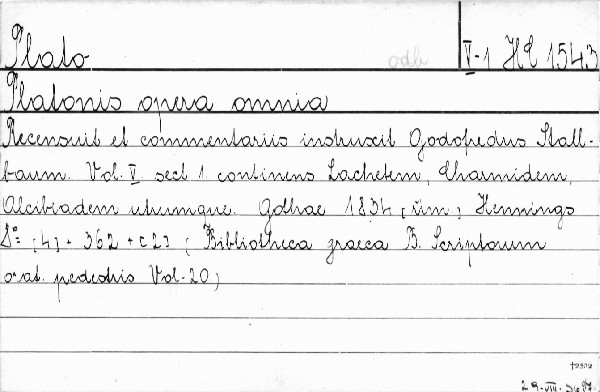 Plato odb V-1 HE 1543
Platonis opera omnia
Recensuit et commentariis instruxit Godofredus Stall-
baum. Vol. V. sect 1. continens Lachetem, Charmidem,
Alcibiadem utrumque. Gothae 1834 [üm] Hennings
8° [4] + 362 + [2] (Bibliotheca graeca B. Scriptorum
orat. pedestris Vol. 20)